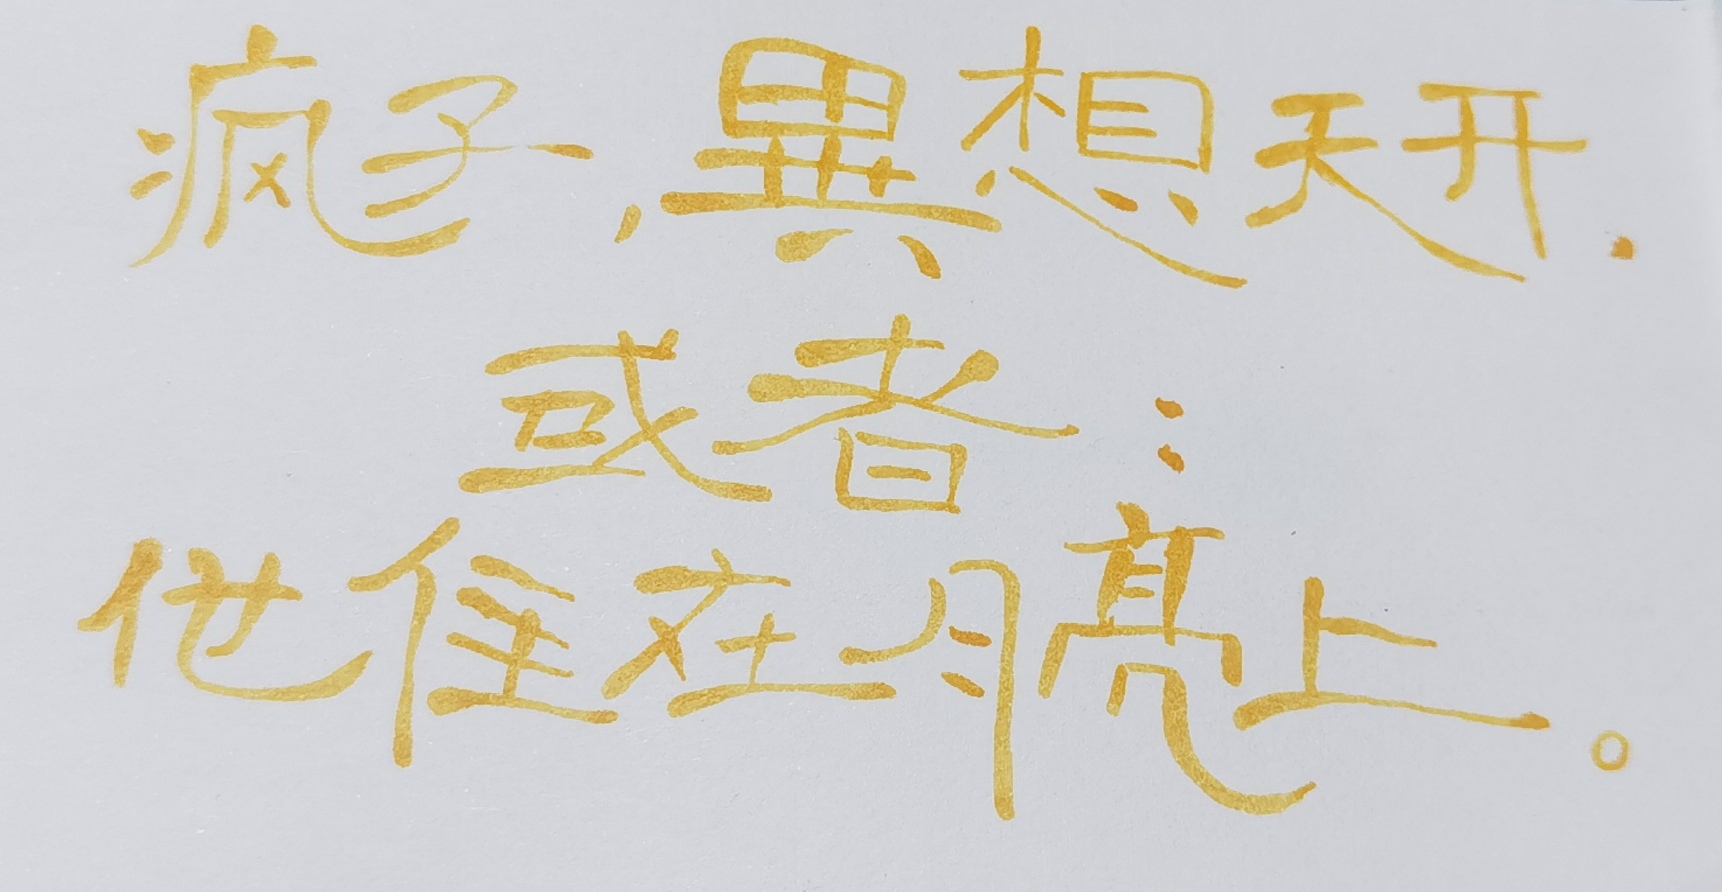 疯子,異想天开.
或者:
他住在月亮上。